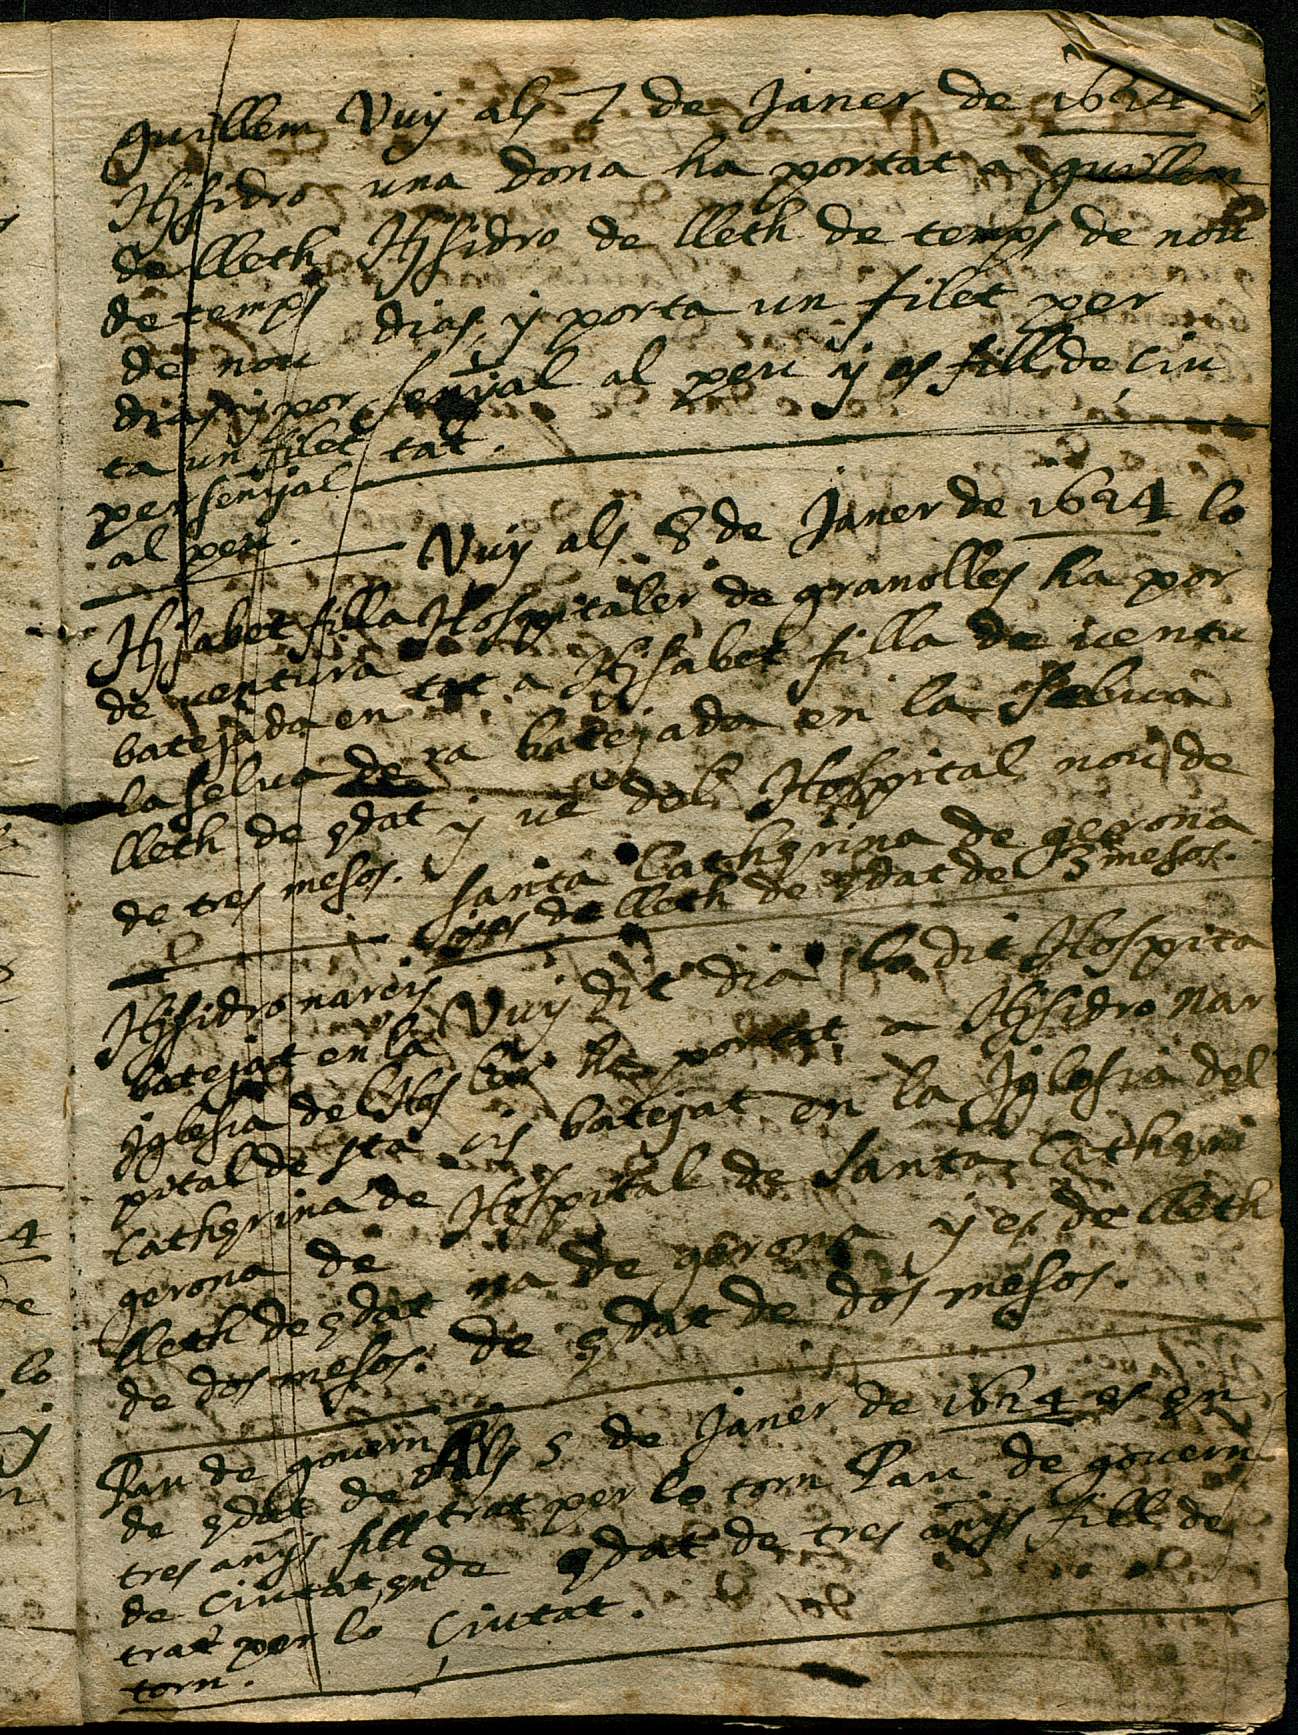 Guillem
Hisidro
de lleth
de temps
de nou
dias y por
ta un filet
per senyal
al peu.
Vuy als 7 de Janer de 1624
una dona ha portat a guillem
Hisidro de lleth de temps de nou
dias, y porta un filet per
senyal al peu y es fill de ciu
tat.
Hisabet filla
de ventura
batejada en
la selva de
lleth de edat
de tres mesos.
Vuy als 8 de Janer de 1624 lo
Hospitaler de granolles ha por
tat a Hisabet filla de ventu
ra batejada en la selva
y ve del Hospital nou de
santa Catherina de gerona
y es de lleth de edat de 3 mesos.
Hisidro narcis
batejat en la
Iglesia del Hos
pital de sta
Catherina de
gerona de
lleth de edat
de dos mesos.
Vuy dit dia lo dit Hospita
ler ha portat a Hisidro nar
cis batejat en la Iglesia del
Hospital de Santa Catheri
na de gerona y es de lleth
de edat de dos mesos.
Pau de govern
de edat de
tres anys fill
de Ciutat en
trat per lo
torn.
Als 5 de Janer de 1624 es en
trat per lo torn Pau de govern
de edat de tres anys fill de
Ciutat.
4
lo
y